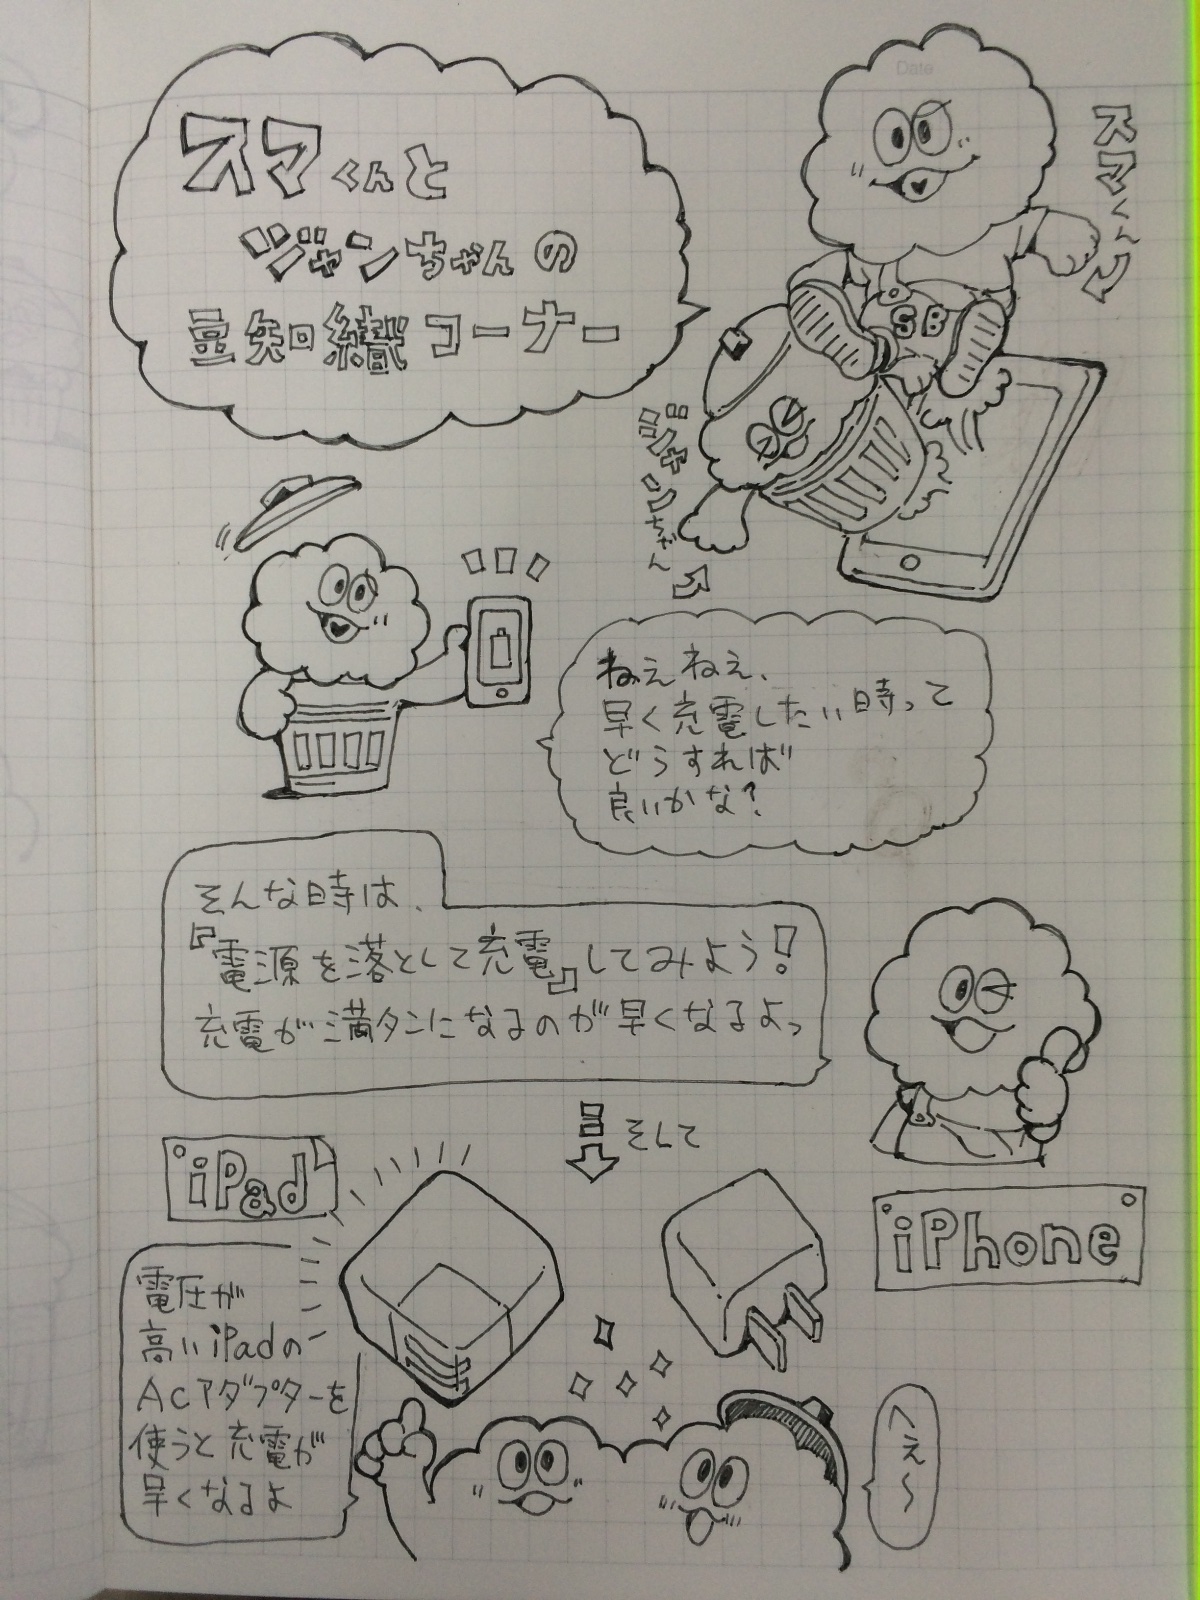 Date
スマくんと
ジャンちゃんの
豆知識コーナー
スマくん
SB
ジャンちゃん
ねえねえ、
早く充電したい時って
どうすれば
良いかな?
そんな時は、
『電源を落として充電』してみよう!
充電が満タンになるのが早くなるよっ
そして
iPad
iPhone
電圧が
高いiPadの
ACアダプターを
使うと充電が
早くなるよ
へぇ〜